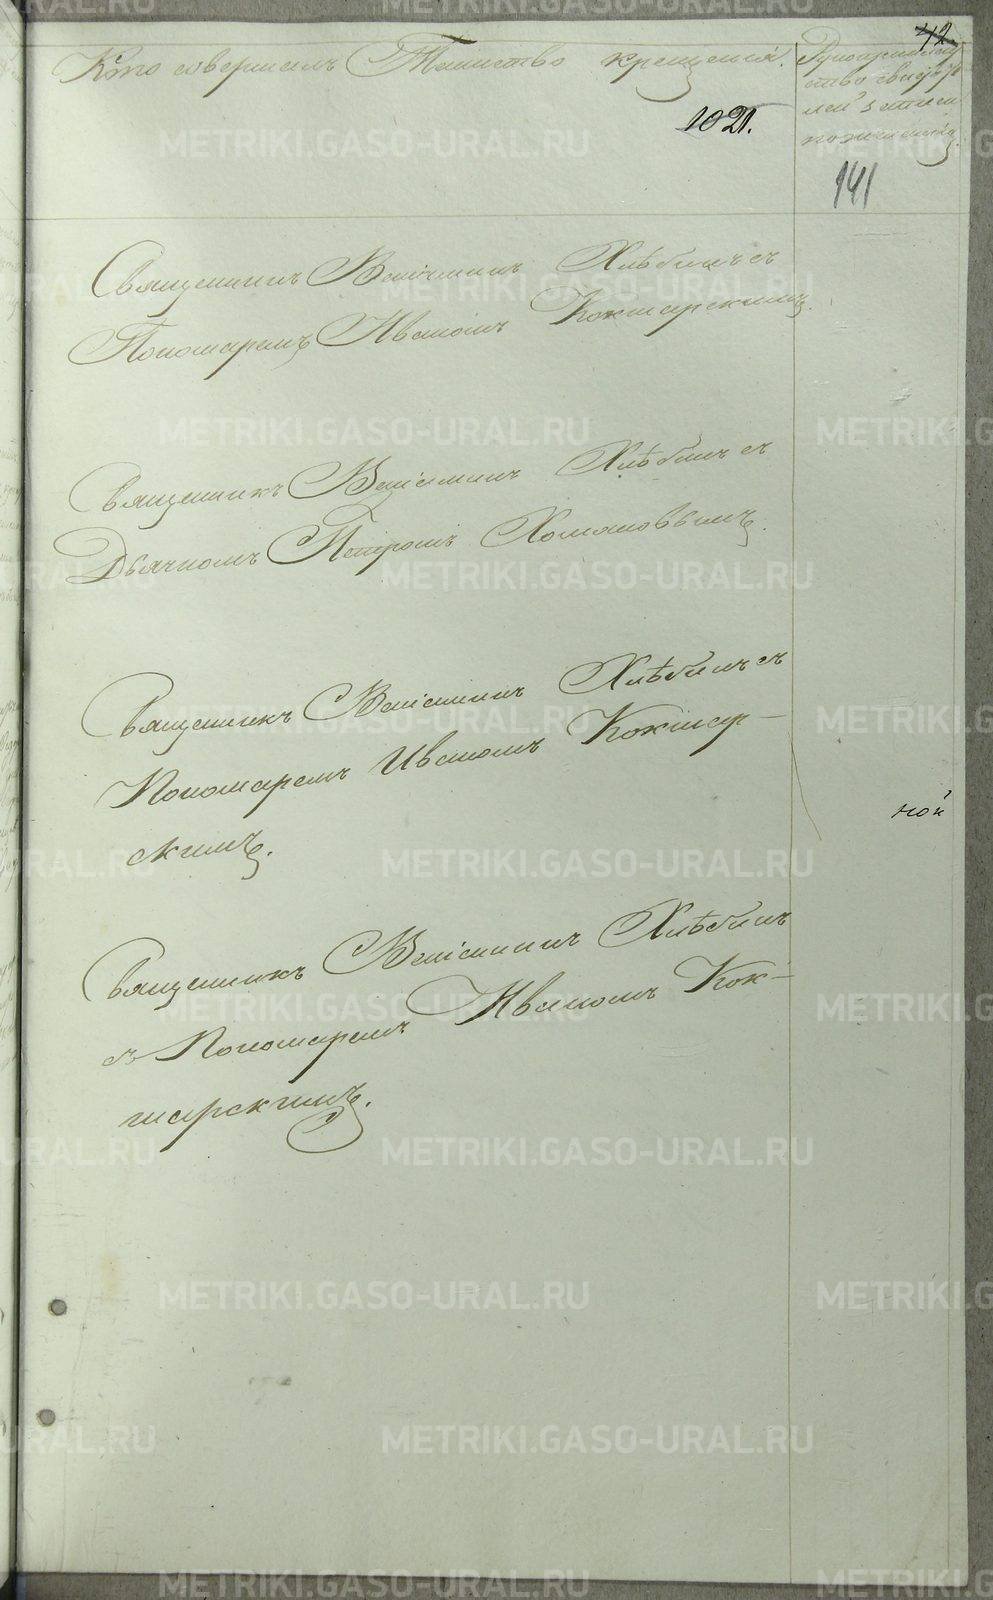 42.
Кто совершалъ Таинство крещенія.
Рукоприклад
ство свидѣте
лей записи
по желанію
1021.
141
Священникъ Веніаминъ Хлѣбинъ съ
Пономаремъ Иваномъ Кокшарскимъ.
Священникъ Веніаминъ Хлѣбинъ съ
Дьячкомъ Петромъ Хомяковымъ.
Священникъ Веніаминъ Хлѣбинъ съ
Пономаремъ Иваномъ Кокшар-
скимъ.
ной
Священникъ Веніаминъ Хлѣбинъ
съ Пономаремъ Иваномъ Кок-
шарскимъ.
METRIKI.GASO-URAL.RU